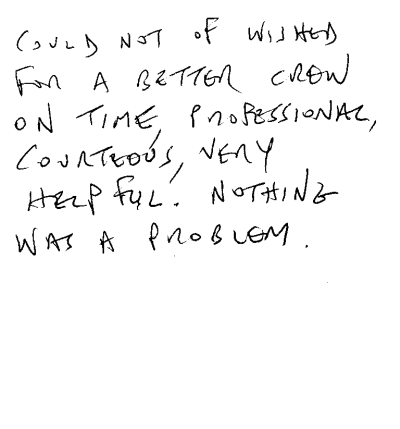 COULD NOT OF WISHED
FOR A BETTER CREW
ON TIME, PROFESSIONAL,
COURTEOUS, VERY
HELPFUL. NOTHING
WAS A PROBLEM.